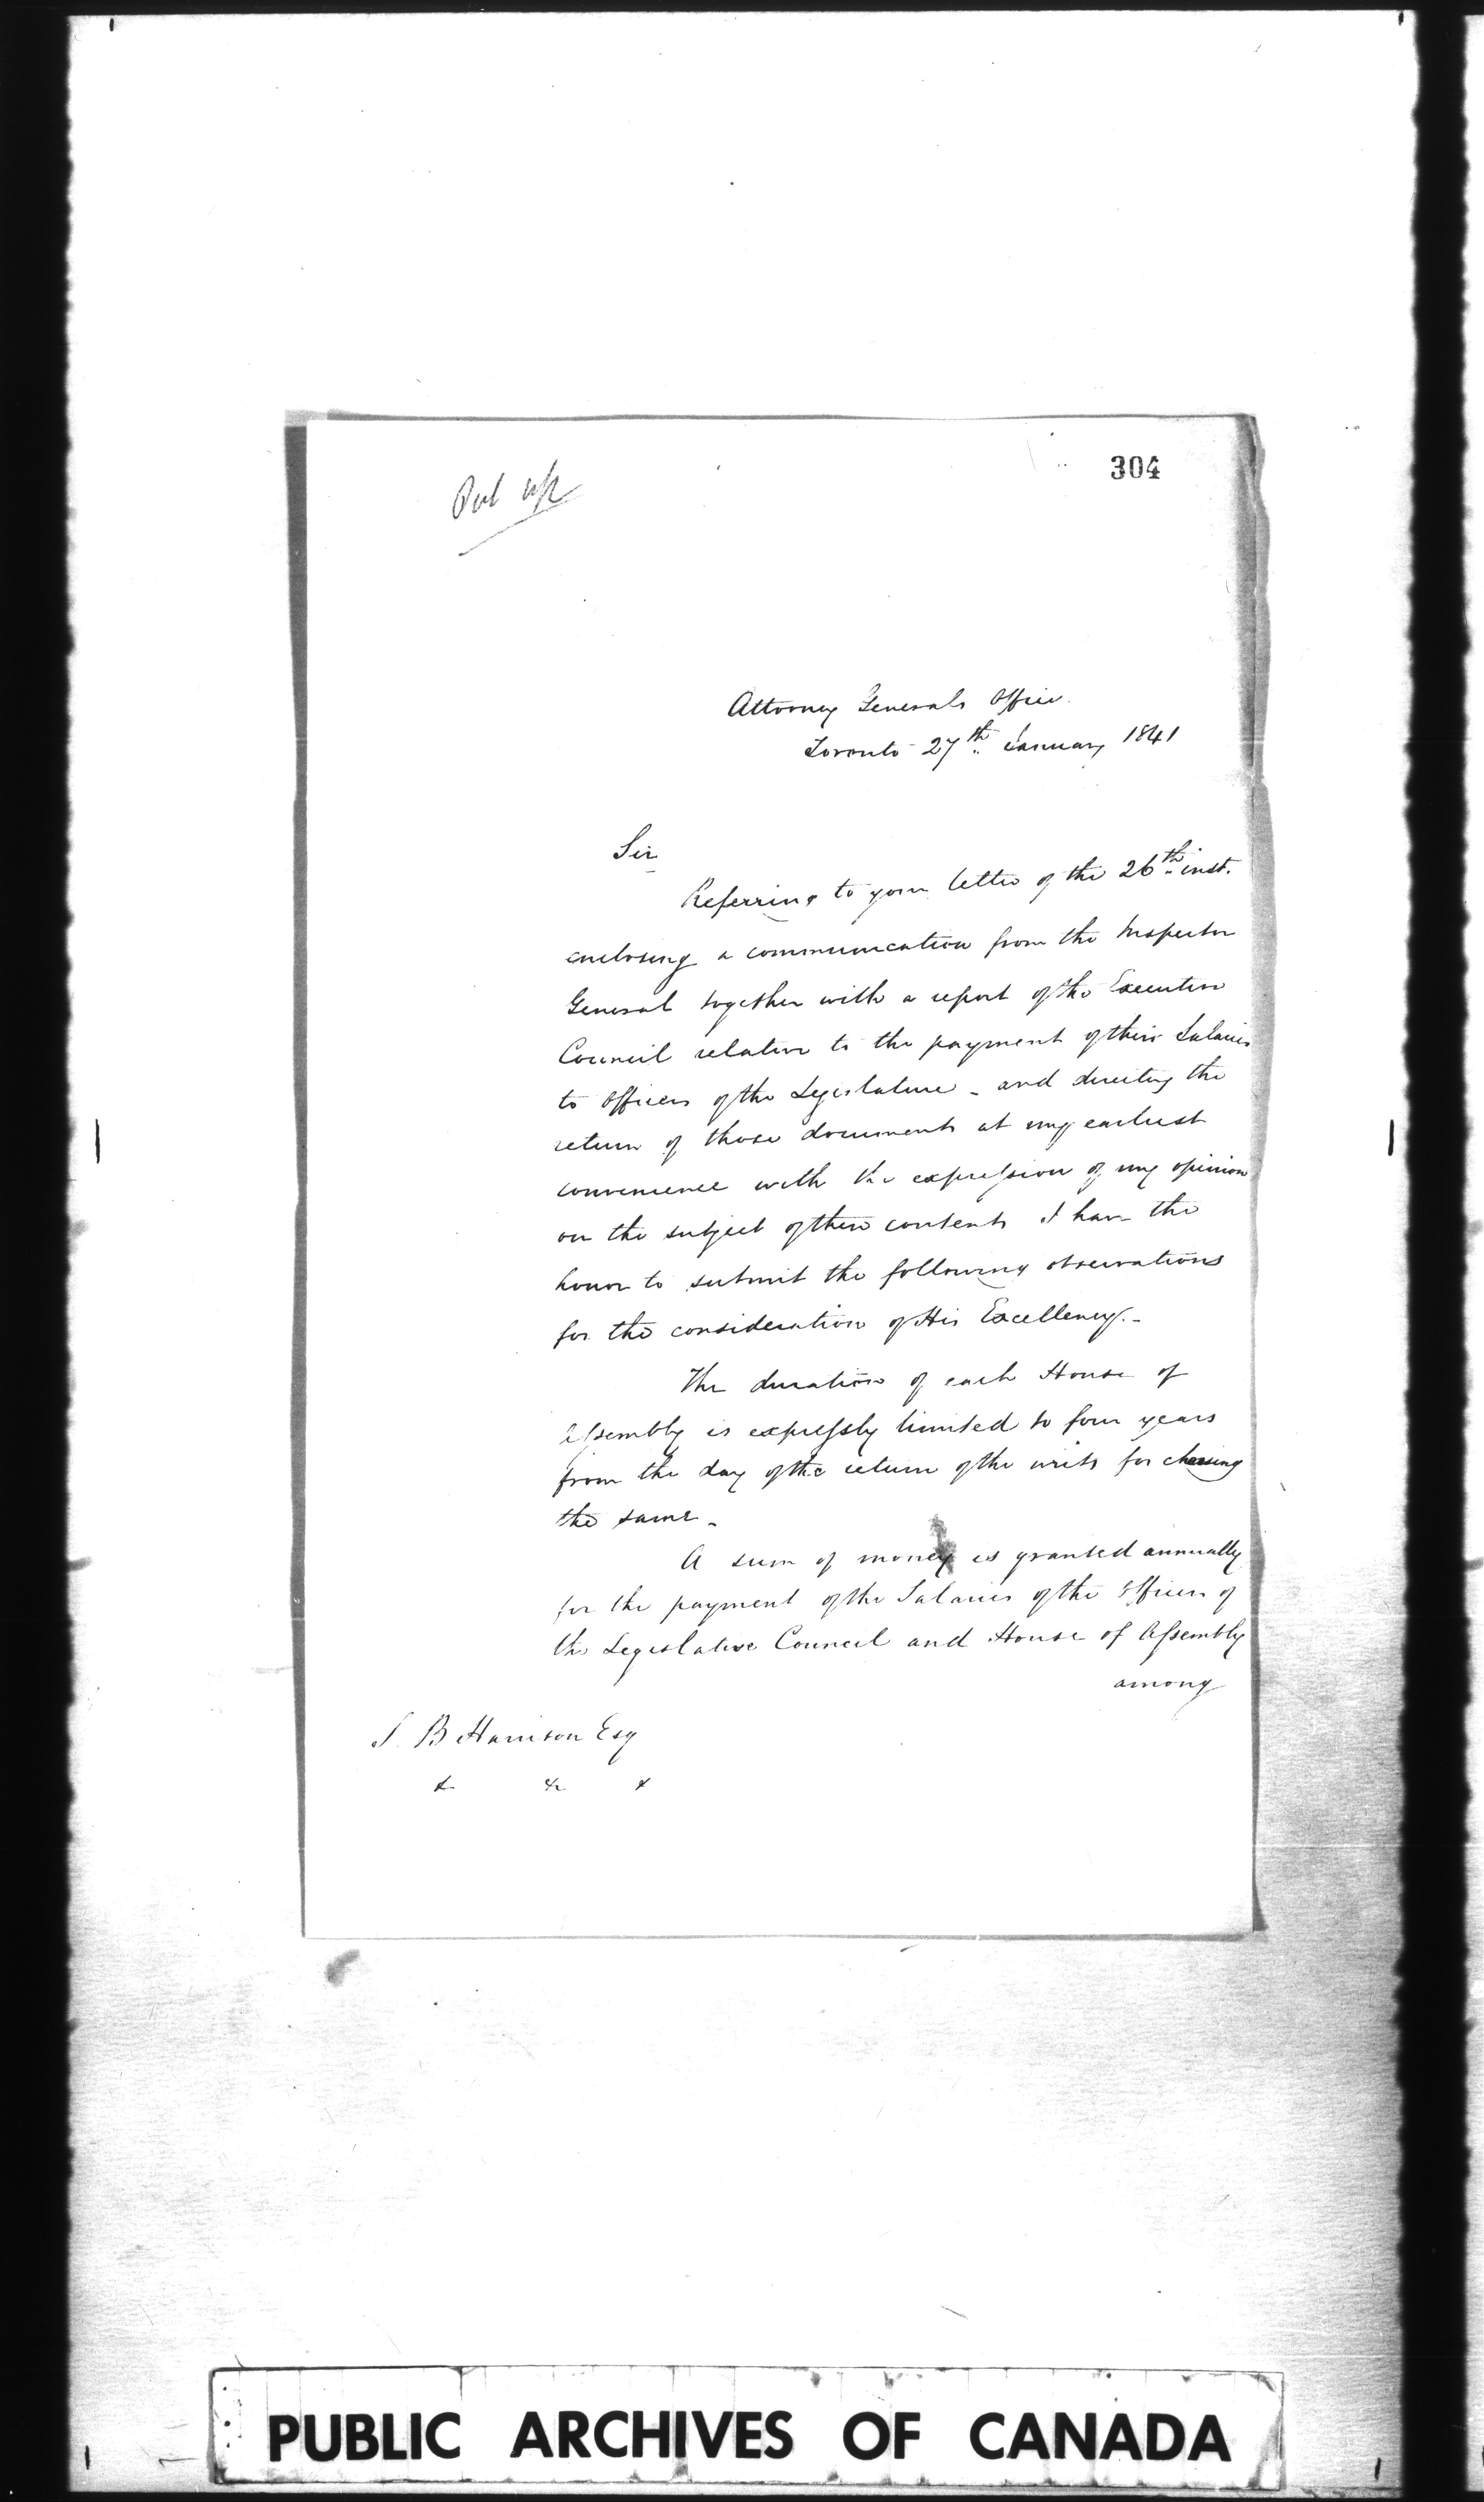 304
Put up
Attorney Generals Office
Toronto 27th January 1841
Sir
Referring to your letter of the 26th inst.
enclosing a communication from the Inspector
General together with a report of the Executive
Council relative to the payment of their Salaries
to Officers of the Legislature - and directing the
return of those documents at my earliest
convenience with the expression of my opinion
on the subject of their contents I have the
honor to submit the following observations
for the consideration of His Excellency.-
The duration of each House of
Assembly is expressly limited to four years
from the day of the return of the writs for choosing
the same -
A sum of money is granted annually
for the payment of the Salaries of the Officers of
the Legislative Council and House of Assembly
among
S. B Harrison Esq
& &c &
PUBLIC ARCHIVES OF CANADA